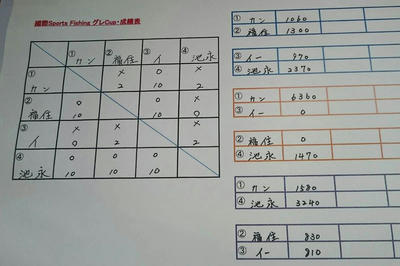 國際Sports Fishing グレCup・成績表
① カン ② 福住 ③ イ ④ 池永
① カン × 2 ○ 10 × 2
② 福住 ○ 10 ○ 10 × 0
③ イ × 0 × 2 × 2
④ 池永 ○ 10 ○ 10 ○ 10
① カン 1060
② 福住 1300
③ イー 970
④ 池永 2370
① カン 6360
③ イー 0
② 福住 0
④ 池永 1470
① カン 1580
④ 池永 3240
② 福住 830
③ イー 810